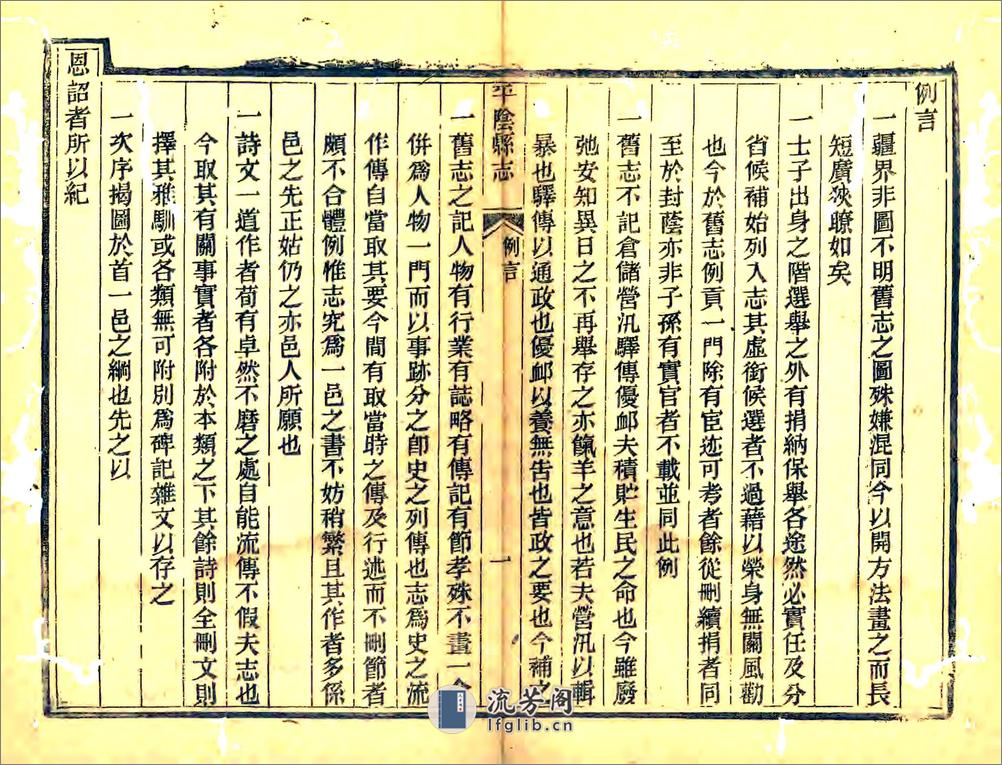 例言
一疆界非圖不明舊志之圖殊嫌混同今以開方法畫之而長
短廣狹瞭如矣
一士子出身之階選舉之外有捐納保舉各途然必實任及分
省候補始列入志其虛銜候選者不過藉以榮身無關風勸
也今於舊志例貢一門除有宦迹可考者餘從刪續捐者同
至於封蔭亦非子孫有實官者不載並同此例
一舊志不記倉儲營汛驛傳優䘏夫積貯生民之命也今雖廢
弛安知異日之不再舉存之亦餼羊之意也若夫營汛以輯
暴也驛傳以通政也優䘏以養無告也皆政之要也今補之
平陰縣志
例言
一
一舊志之記人物有行業有誌略有傳記有節孝殊不畫一今
併爲人物一門而以事跡分之卽史之列傳也志爲史之流
作傳自當取其要今間有取當時之傳及行述而不刪節者
頗不合體例惟志究爲一邑之書不妨稍繁且其作者多係
邑之先正姑仍之亦邑人所願也
一詩文一道作者荀有卓然不磨之處自能流傳不假夫志也
今取其有關事實者各附於本類之下其餘詩則全刪文則
擇其雅馴或各類無可附別爲碑記雜文以存之
一次序揭圖於首一邑之綱也先之以
恩詔者所以紀
流芳阁
lfglib.cn